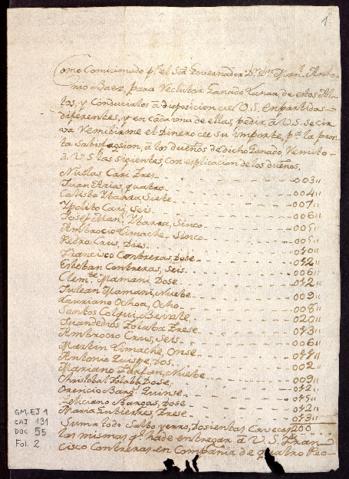 1
Como Comicionado pr. el Sor. Governador Dn. Juan Anto
nio Baez, para Reclutar Ganado Lanar de estos Al
tos, y Conducirlos a disposicion de V.S. en partidas
diferentes, y en cada una de ellas, pedir a V.S. se cir
va Remitirme el Dinero de su importe, pa. la pron
ta Satisfacsion, a los dueños de dicho Ganado Remito
a V.S. las siguientes, con esplicacion de los dueños.
Cari, tres 003"
Juan Arias, quatro 004"
Ybarra, Siete 007"
Ypolito Cari, Seis 006"
Josef Ybarra, Sinco 005"
Ambrocio Limache, Sinco 005"
Pedro Cruz, Dies 010"
Francisco Contreras, Dose 012"
Esteban Contreras, Seis 006"
Clemte. Mamani, Dose 012"
Julian Mamani, Nuebe 009"
Laureano Ochoa, Ocho 008"
Santos Colqui, Beinte 020"
Juan de Dios Trese 013"
Ambrocio Cruz, Seis 006"
Martin Limache, Onse 011"
Antonio Quispe, Dos 002
Mariano Farfan, Nuebe 009"
Christobal Dose 012"
Orencio Quinse 015"
Feliciano Bargas, Dose 012"
Maria Trese 013"
Suma todo Salbo yerro, Dosientas Cavesas 200
las mismas qe. ha de entregar a V.S. Dn. Fran
cisco Contreras en Compañia de quatro Peo
GM.EJ 1
CAJ 131
DOC 55
Fol. 2